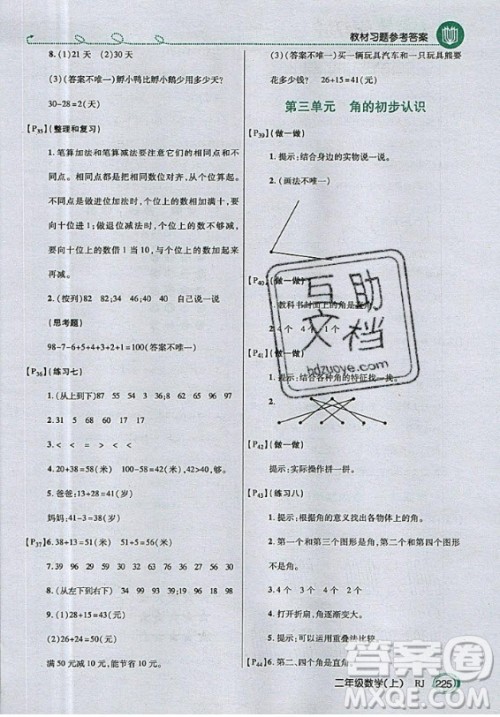 教材习题参考答案
8.(1)21天 (2)30天
(3)(答案不唯一)孵小鸭比孵小鹅少用多少天?
30-28=2(天)
【P35】(整理和复习)
1.笔算加法和笔算减法要注意它们的相同点和不
同点。相同点:都是相同数位对齐,从个位算起。
不同点:做进位加法时,个位上的数相加满十,要
向十位进1;做退位减法时,个位上的数不够减,
要向十位上的数借1当10,与个位上的数相加后
再减。
2.(按列)82 82;34 46 自己说一说
(思考题)
98-7-6+5+4+3+2+1=100(答案不唯一)
【P36】(练习七)
1.(从上到下)87 95 54 32 3 59
2.31 5 68 60 20 74
3.< < = > > <
4.20+38=58(米) 100-58=42(米)
5.爸爸:13+28=41(岁)
妈妈:
【P37】6.38+13=51(米)
7.98 38 30 23 97 46 9 83
8.(从左下到右下)34 93 54 19 91
9.(1)28+15=43(元)
(2)26+24=50(元)
满50元减10元,能节省10元。
(3)(答案不唯一)买一辆玩具汽车和一只玩具熊要
花多少钱? 26+15=41(元)
第三单元 角的初步认识
【P39】(做一做)
1.提示:结合身边的实物说一说。
2.(画法不唯一)
【P40】(做一做)
1.教科书封面上的角是直角。
2.4个 4个 1个
【P41】(做一做)
提示:结合各种角的特征找一找。
【P42】(做一做)
提示:实际操作拼一拼。
【P43】(练习八)
1.提示:根据角的意义找出各物体上的角。
2.第一个和第三个图形是角,第二个和第四个图形
不是角。
4.打开折扇,角依次变大。
5.提示:可以运用重叠法比较。
【P44】6.第二、四个角是直角。
互助
文档
bdzuoye.com
二年级数学(上) RJ 225
答案圈
MXQE.COM